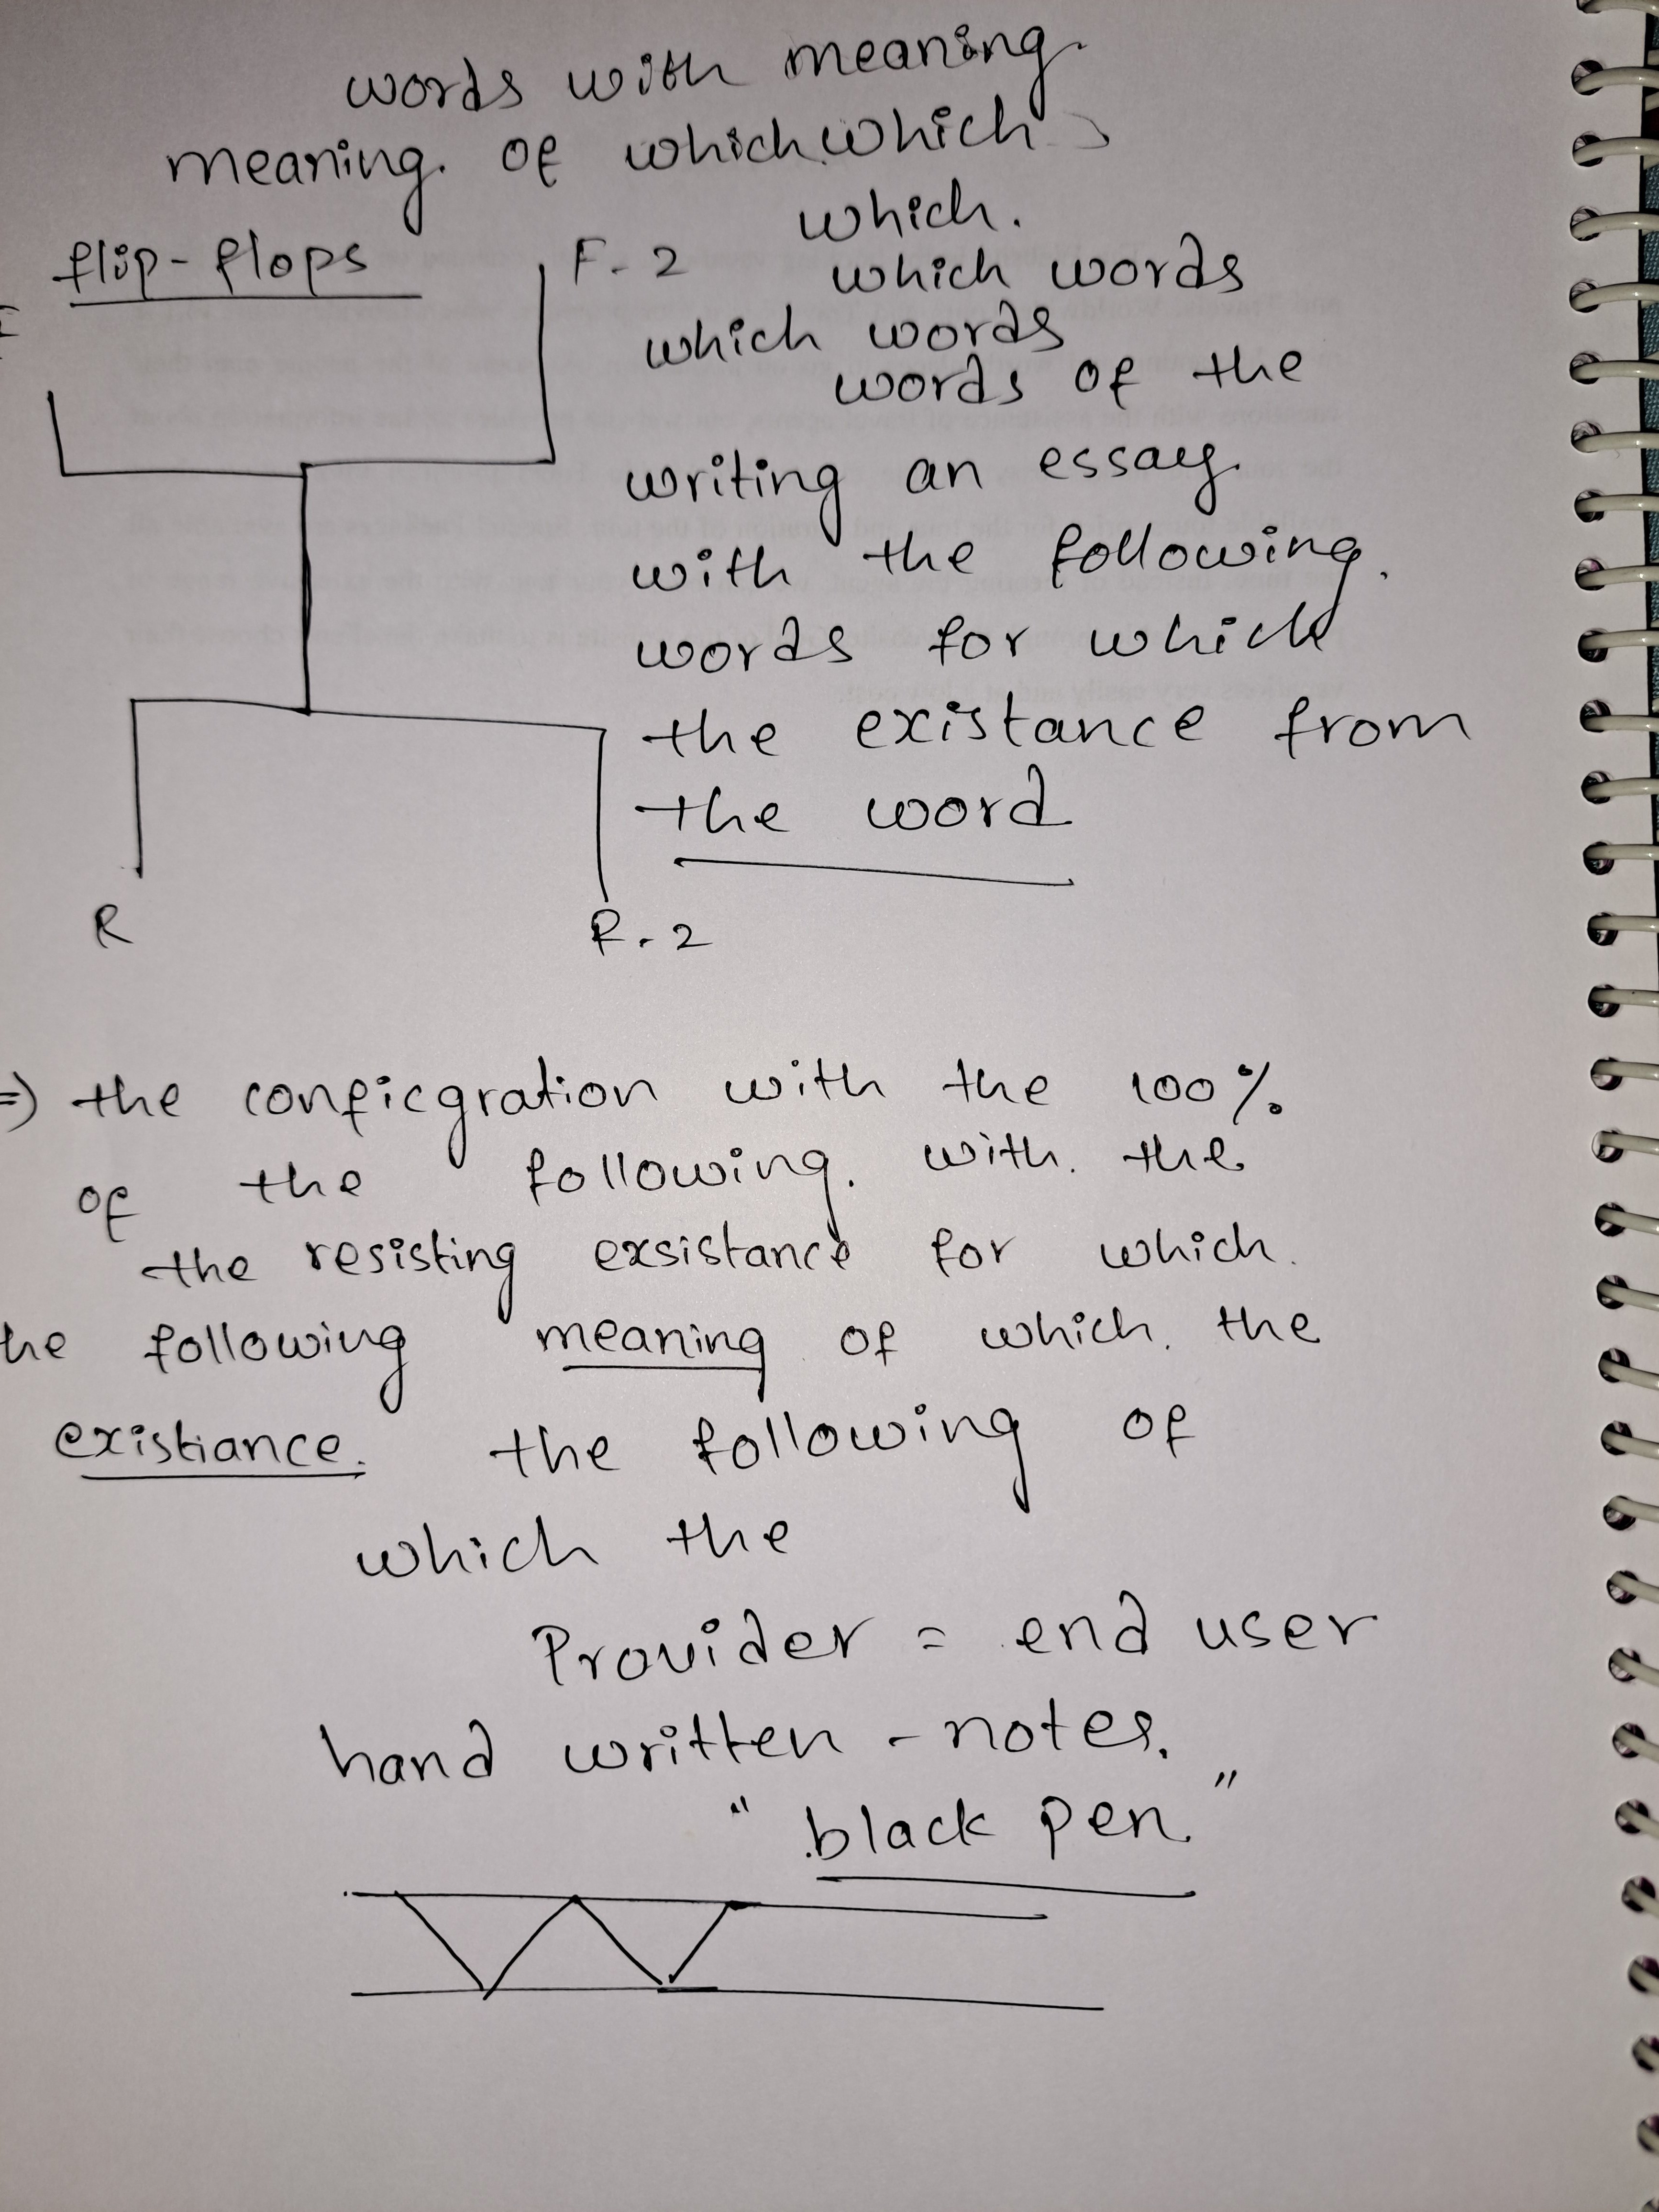 words with meaning.
meaning. of which which
which.
flip-flops
F-2
which words
which words
words of the
writing an essay.
with the following.
words for which
the existance from
the word
R
R-2
=) the conficgration with the 100%.
of the following. with. the
the resisting exsistance for which.
he following meaning of which. the
existiance. the following of
which the
Provider = end user
hand written - notes.
" black pen. "